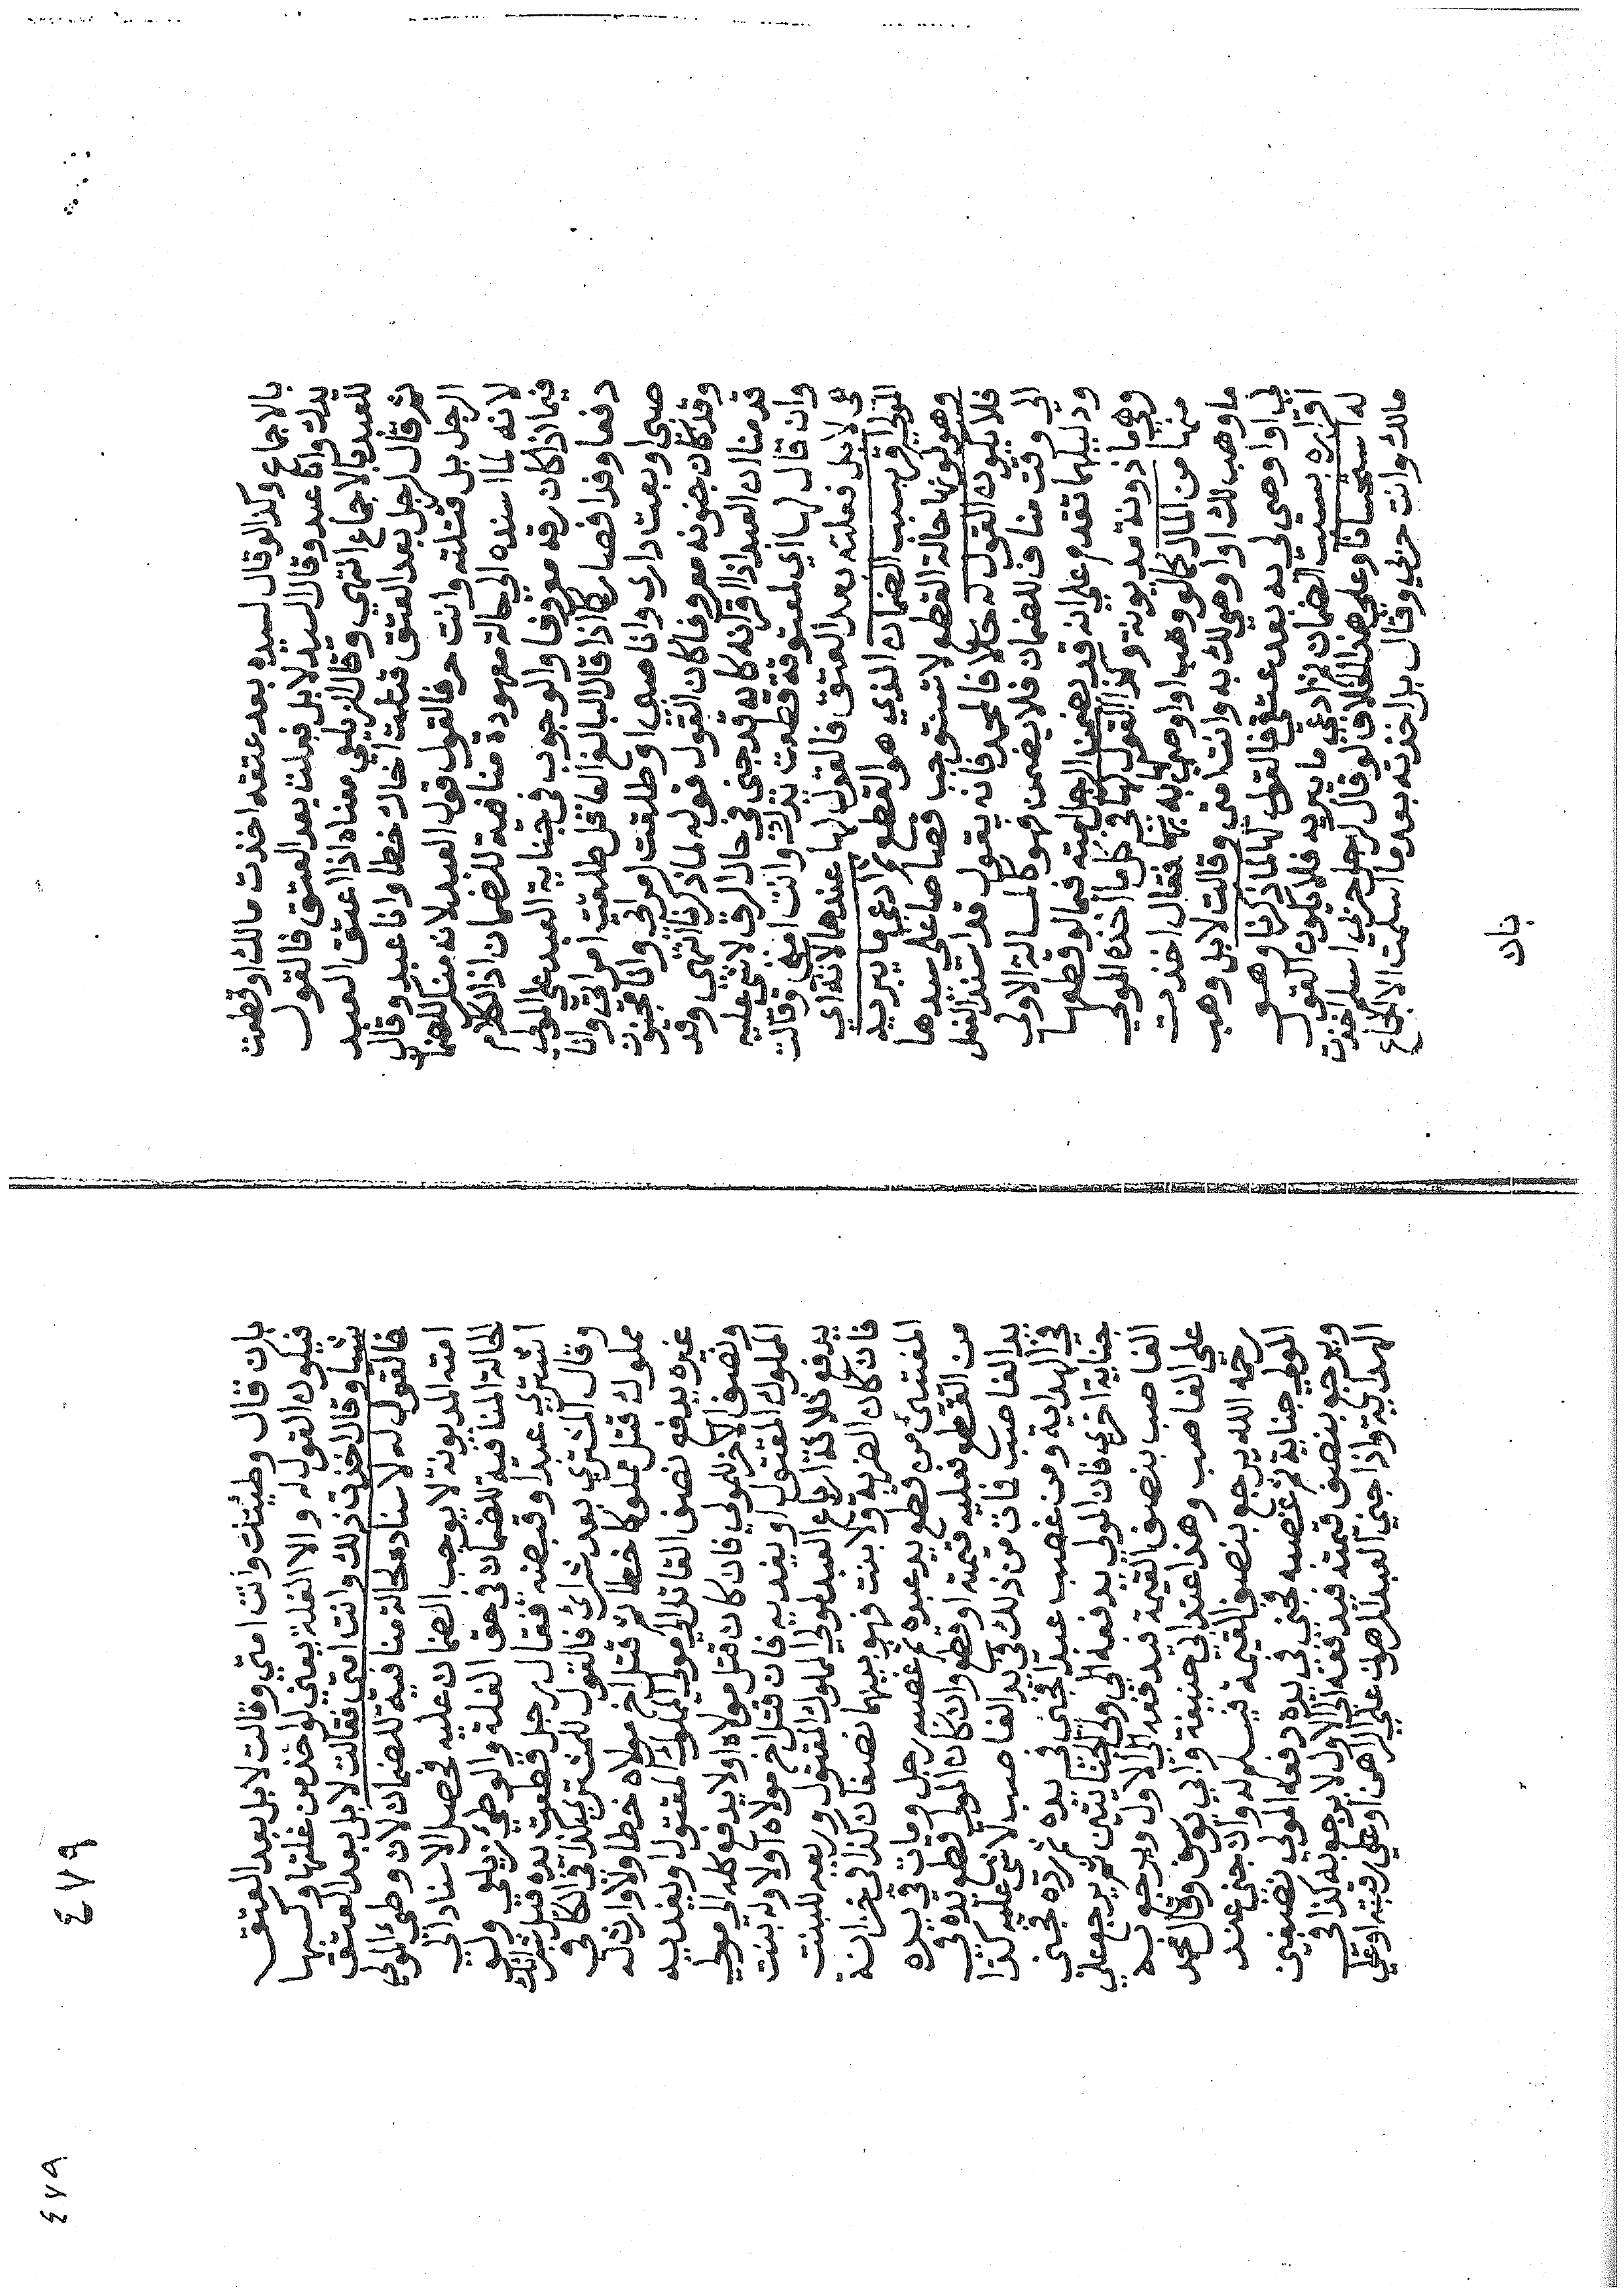 بالاجماع وكذا لو قال لسيده بعد عتقه اخذت مالك او قطعت
يدك وانا عبد وقال السيد لا بل فعلت بعد العتق فالقول
للعبد بالاجماع انتهي وقال الزيلعي معناه اذا اعتق العبد
ثم قال لرجل بعد العتق قتلت اخاك خطا وانا عبد وقال
الرجل بل قتلته وانت حر فالقول قول العبد لانه منكر للضمان
لانه لما اسنده الي حالة معهودة منافية للضمان اذ الكلام
فيما اذا كان رقه معروفا والوجوب في جناية العبد علي المولي
دفعا وفدا فصار كما اذا قال البالغ العاقل طلقت امراتي وانا
صبي او بعت داري وانا صبي او طلقت امراتي وانا مجنون
وقد كان جنونه معروفا كان القول قوله لما ذكرنا انتهي وقد
قدمنا ان العبد اذا اقر انه كان قد جني في حال الرق لا شي عليه
وان قال لها اي لمعتوقة قطعت يدك وانت امتي وقالت
هي لا بل فعلته بعد العتق فالقول لها عندهما لانه اي
المولي اقر بسبب الضمان الذي هو القطع ثم ادعي ما يبريه
وهو كونها حالة القطع لا تستوجب قصاصا علي سيدها
فلا يكون القول له فانه يقول قد اسند الفعل
الي وقت مناف للضمان فلا يضمن فهو كالمسالة الاولي
ودليلهما تقدم علي انه قد يضمن الرجل امته فيما لو قطعها
وهي ماذونة مديونة وكذا القول لها في كل ما اخذه المولي
منها من المال كما لو وهب او اوصي به لها فقال اخذت
ما وهب لك او اوصي لك به وانت امتي وقالت لا بل وهب
لي او اوصي لي به بعد عتقي فالقول لها لما ذكرنا وهو
اقراره بسبب الضمان ثم ادعي ما يبريه فلا يكون القول
له استحسانا وعلي هذا الخلاف لو قال لرجل حربي اسلم اخذت
مالك وانت حربي وقال بل اخذته بعد ما اسلمت الا الجماع
بان
٤٧٩
بان قال وطيتك وانت امتي وقالت لا بل بعد العتق
فيكون القول له والا الغلة يعني لو اخذ من غلتها وكسبها
شيا وقال اخذت ذلك وانت امتي فقالت لا بل بعد العتق
فالقول له لاسناده لحالة منافية للضمان لان وطي المولي
امته المديونة لا يوجب الضمان عليه فحصل الاسناد الي
الحالة المنافية للضمان في حق الغلة والوطي زيلعي ولو
اشتري عبدا وقبضه فقال رجل قطعت يده قبل شرائك
وقال المشتري بعد شرائي فالقول للمشتري كذا في الكافي
مملوك قتل مملوكا خطا ثم قتل اخ مولاه خطا ولا وارث له
غيره يدفع نصف القاتل الي مولي المملوك المقتول او يفديه
ونصف الاخر للمولي فان كان قتل مولاه اولا يدفع كله الي مولي
المملوك المقتول او يفديه فان قتل اخ مولاه اولا وله بنت
يدفع ثلاثة ارباع العبد لمولي المملوك المقتول وربعه للبنت
فان كان الضربة ولا بنت فهو بينهما نصفان كذا في خزانة
المفتين من قطع يد عبده ثم غصبه رجل ومات في يده
من القطع فعليه قيمته اقطع وان كان المولي قطع يده في
يد الغاصب فمات من ذلك في يد الغاصب لا شي عليه كذا
في الهداية ومن غصب عبدا فجني في يده ثم رده فجني
جناية اخري فان المولي يدفعه الي ولي الجنايتين ثم يرجع علي
الغاصب بنصف القيمة فيدفعه الي الاول ويرجع به
علي الغاصب وهذا عند ابي حنيفة وابي يوسف وقال محمد
رحمه الله يرجع بنصف القيمة فيسلم له وان جني عند
المولي جناية ثم غصبه فجني في يده دفعه المولي نصفين
ويرجع بنصف قيمته فيدفعه الي الاول لا يرجع به كذا في
الهداية واذا جني العبد المرهون علي الراهن او علي رقيقه او علي
٤٧٩